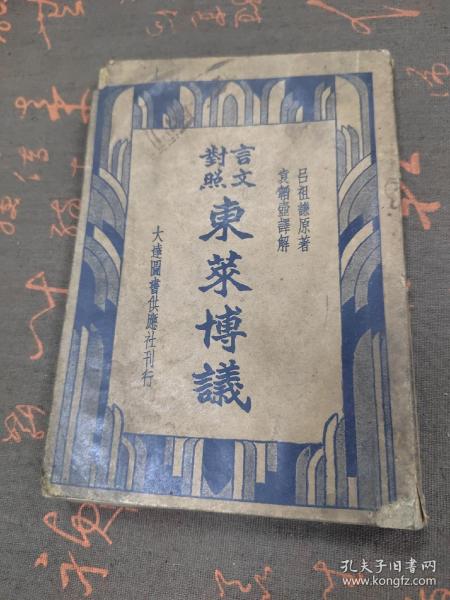 呂祖謙原著
袁韜壺譯解
言文
對照
東萊博議
大達圖書供應社刊行
孔夫子旧书网
www.kongfz.com